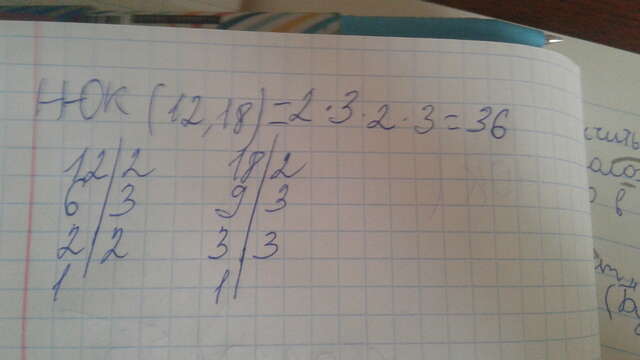 НОК (12,18)=2·3·2·3=36
12|2 18|2
6|3 9|3
2|2 3|3
1| 1|
чить
в